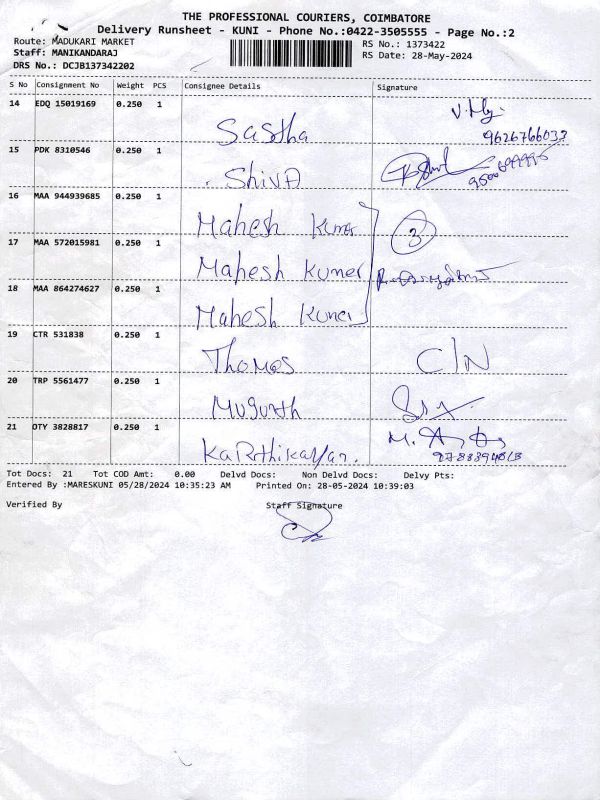 THE PROFESSIONAL COURIERS, COIMBATORE
Delivery Runsheet - KUNI - Phone No.:0422-3505555 - Page No.:2
Route: MADUKARI MARKET
RS No.: 1373422
Staff: MANIKANDARAJ
RS Date: 28-May-2024
DRS No.: DCJB137342202
S No Consignment No Weight PCS Consignee Details Signature
14 EDQ 15019169 0.250 1 Sastha
9626766033
15 PDK 8310546 0.250 1 Shiva
16 MAA 944939685 0.250 1 Mahesh Kumer
3
17 MAA 572015981 0.250 1 Mahesh Kumer
18 MAA 864274627 0.250 1 Mahesh Kumer
19 CTR 531838 0.250 1 Thomas C/N
20 TRP 5561477 0.250 1
21 OTY 3828817 0.250 1 Karthikayan.
Tot Docs: 21 Tot COD Amt: 0.00 Delvd Docs: Non Delvd Docs: Delvy Pts:
Entered By :MARESKUNI 05/28/2024 10:35:23 AM Printed On: 28-05-2024 10:39:03
Verified By Staff Signature